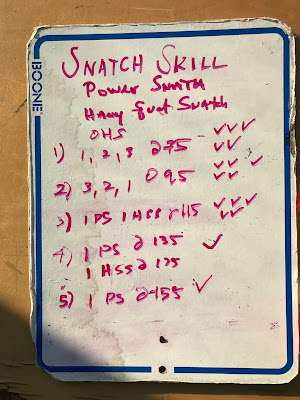 BOONE
SNATCH SKILL
Power Snatch
Hang Squat Snatch
OHS
1) 1, 2, 3 @75
2) 3, 2, 1 @95
3) 1 PS 1 HSS @115
4) 1 PS @ 135
1 HSS @ 135
5) 1 PS @155